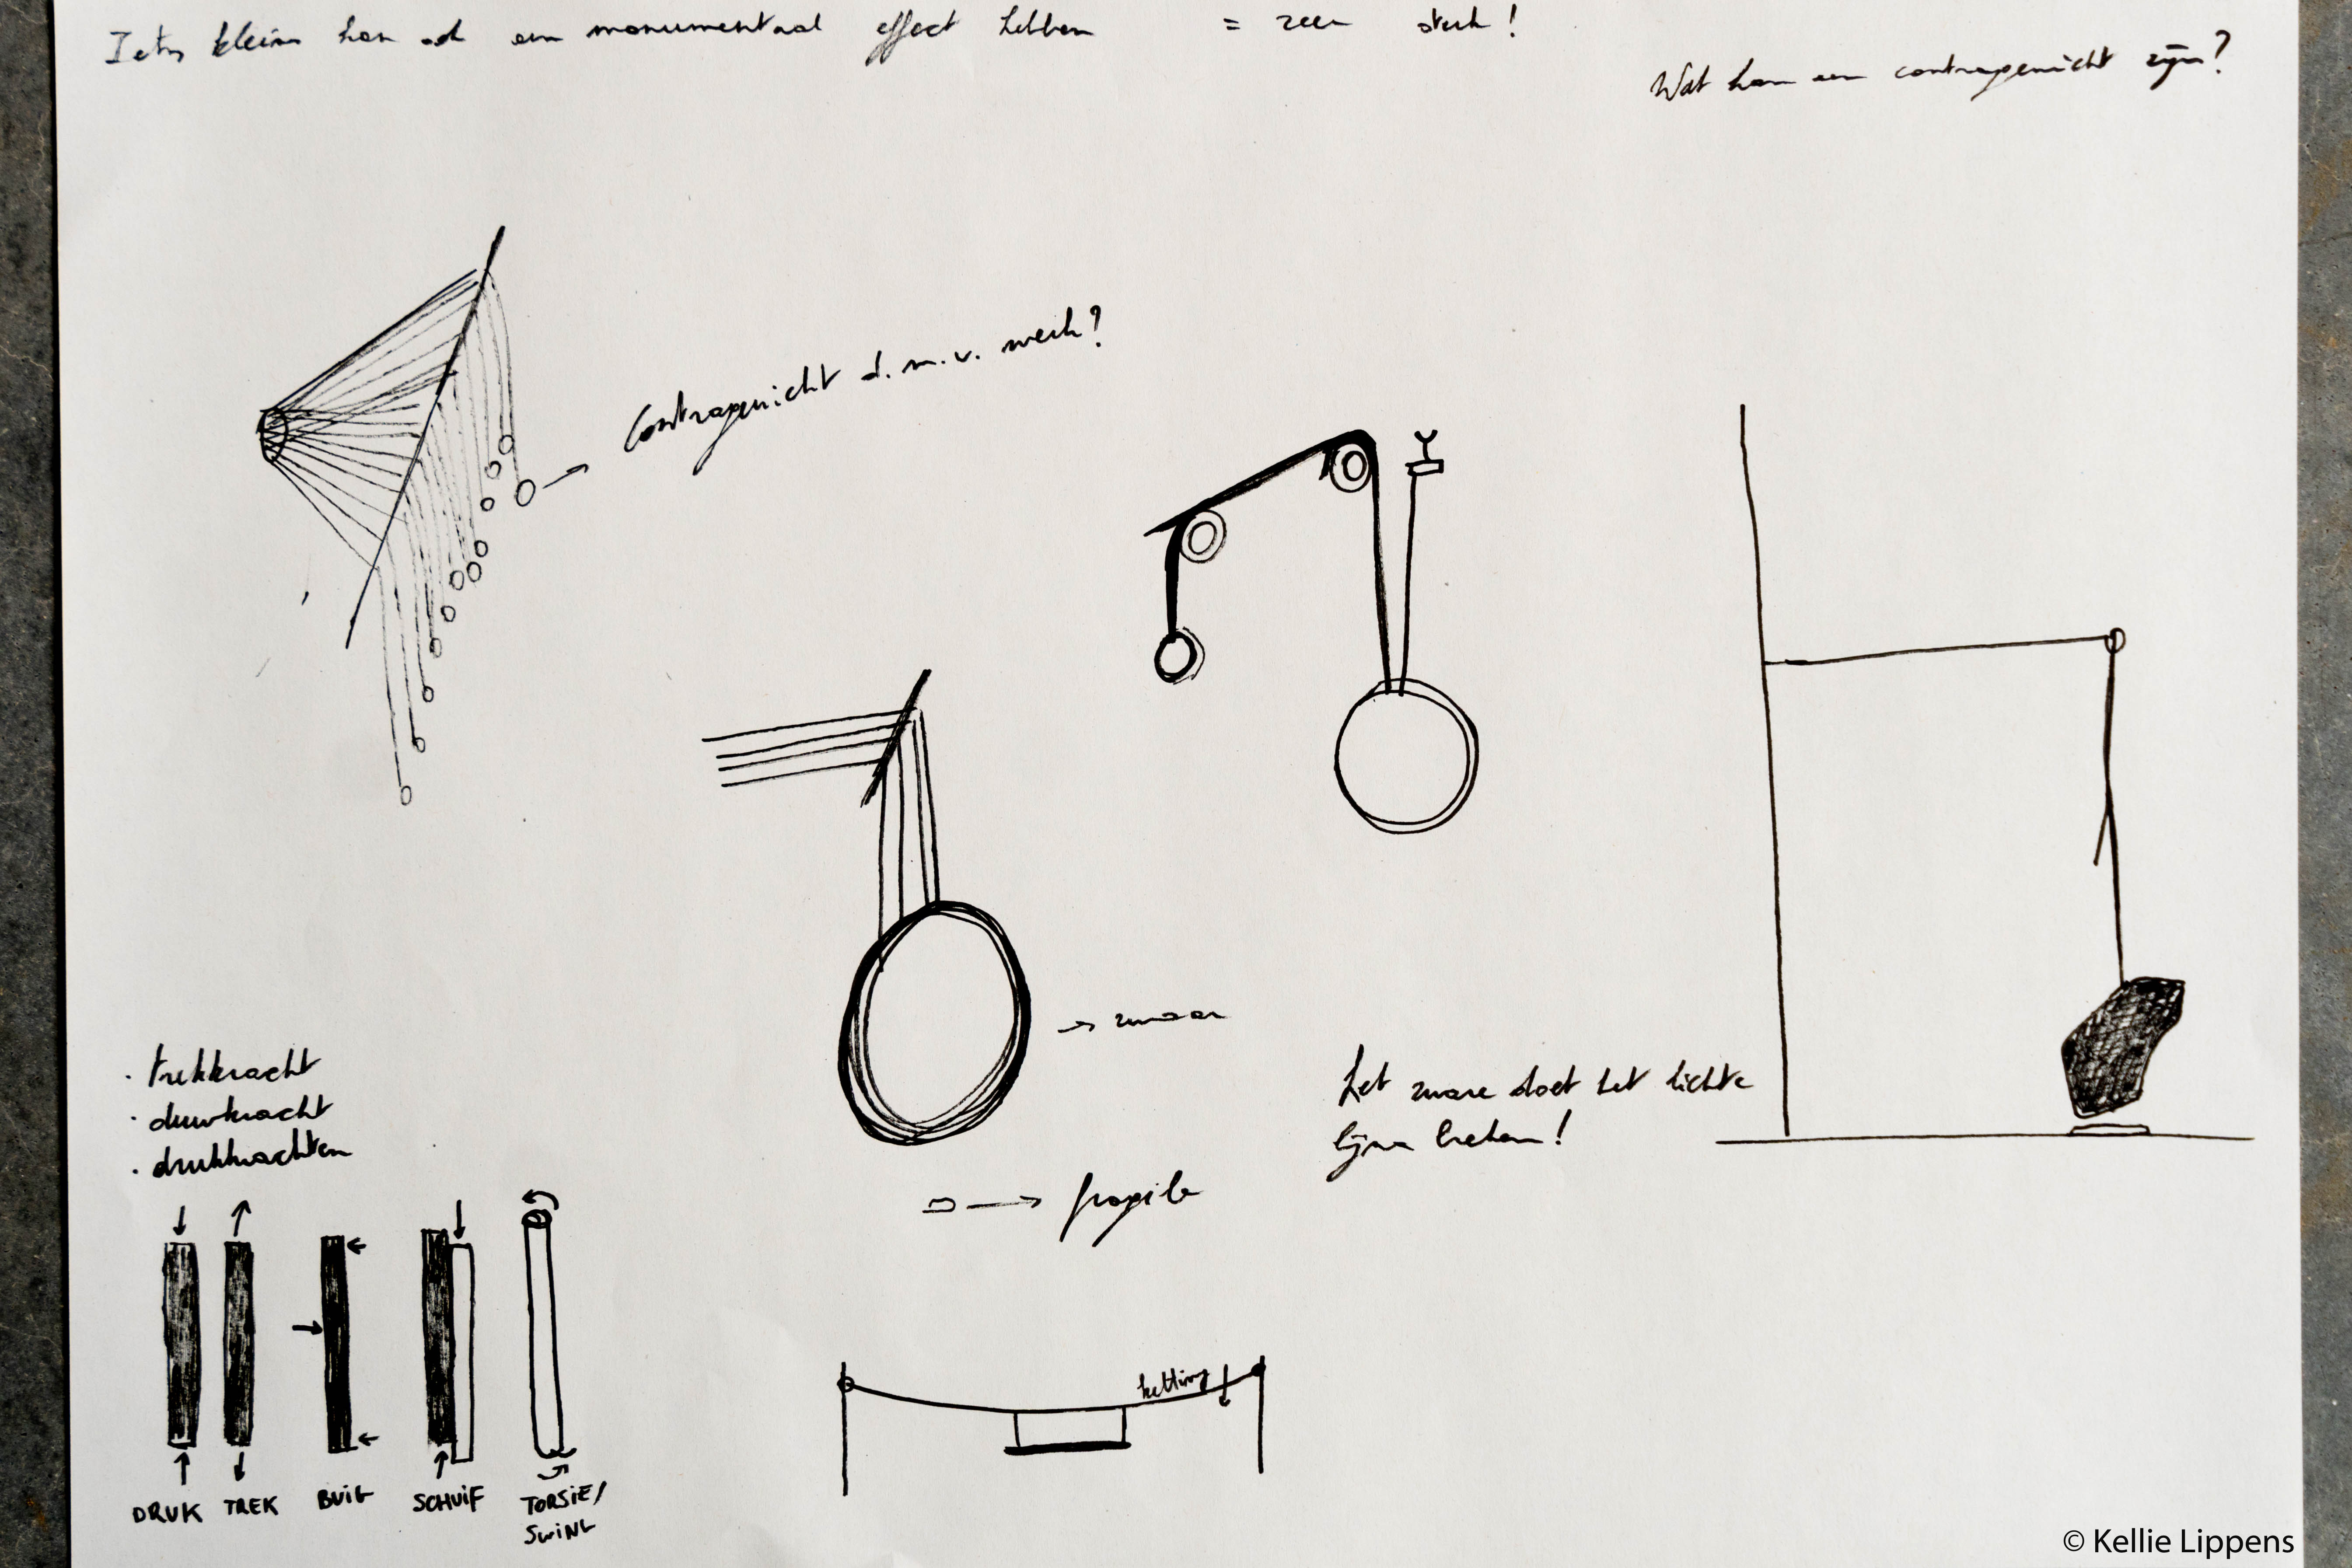 Iets kleins kan ook een monumentaal effect hebben = zeer sterk!
Wat kan een contragewicht zijn?
Contragewicht d.m.v. werk?
→ zwaar
Het zware doet het lichte
lijken breken!
→ fragile
· trekkracht
· duwkracht
· drukkrachten
DRUK TREK BUIG SCHUIF TORSIE/
SWING
ketting
© Kellie Lippens